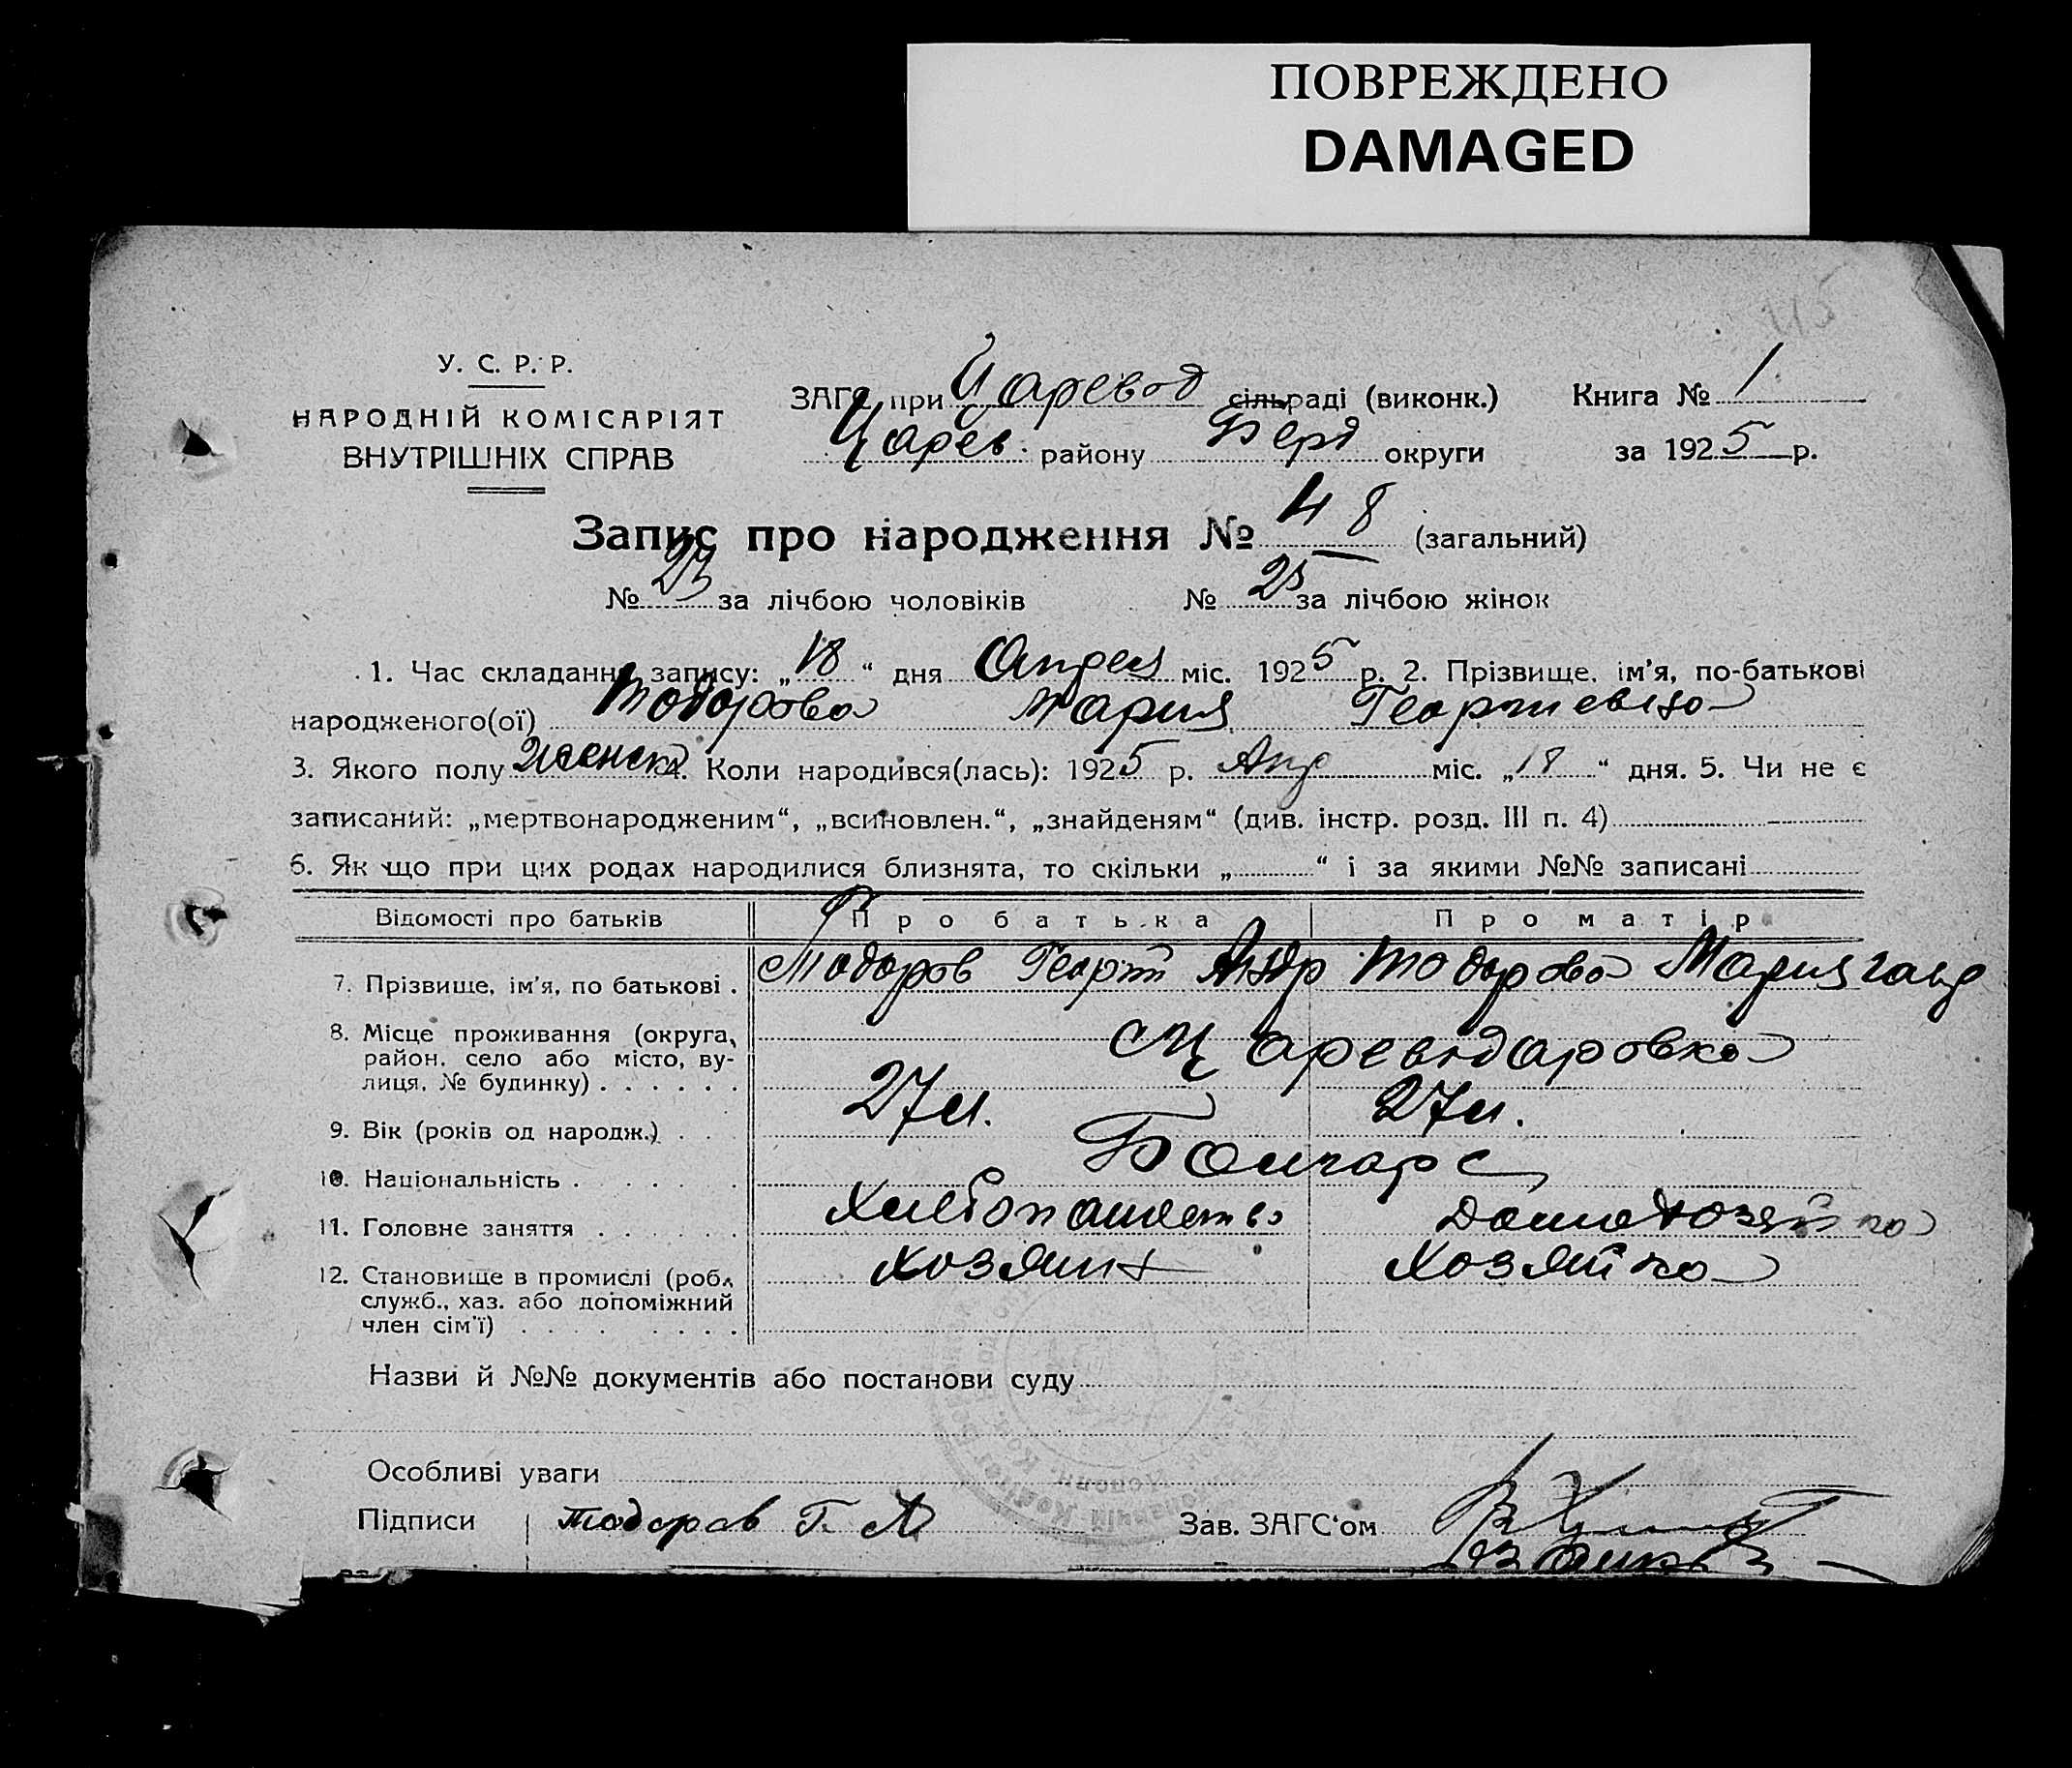 ПОВРЕЖДЕНО
DAMAGED
115
У. С. Р. Р.
НАРОДНІЙ КОМІСАРІЯТ
ВНУТРІШНІХ СПРАВ
ЗАГС при Царевод сільраді (виконк.) Книга № 1
Царев. району Берд округи за 1925 р.
Запис про народження № 48 (загальний)
№ 23 за лічбою чоловіків № 25 за лічбою жінок
1. Час складання запису: „18“ дня Апреля міс. 1925 р. 2. Прізвище, ім'я, по-батькові
народженого(ої) Тодорова Мария Георгиевна
3. Якого полу женск 4. Коли народився(лась): 1925 р. Апр міс. „18“ дня. 5. Чи не є
записаний: „мертвонародженим“, „всиновлен.“, „знайденям“ (див. інстр. розд. III п. 4)
6. Як що при цих родах народилися близнята, то скільки „ “ і за якими №№ записані
Відомості про батьків Про батька Про матір
7. Прізвище, ім'я, по батькові . Тодоров Георги Андр Тодорова Мария
8. Місце проживання (округа, район, село або місто, вулиця, № будинку) . . . . . . с Цареводаровка
9. Вік (років од народж.) . . . 27 л. 27 л.
10. Національність . . . . . . Болгаре
11. Головне заняття . . . . . . Хлебопашество Домохозяйка
12. Становище в промислі (роб., служб., хаз. або допоміжний член сім'ї) . . . . . . . . Хозяин Хозяйка
Назви й №№ документів або постанови суду
Особливі уваги
Підписи Тодоров Г. А Зав. ЗАГС'ом